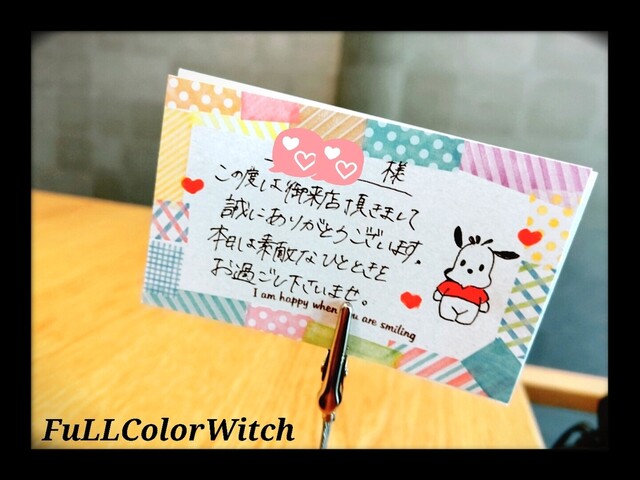 様
この度は御来店頂きまして
誠にありがとうございます。
本日は素敵なひとときを
お過ごし下さいませ。
I am happy when you are smiling
FuLLColorWitch